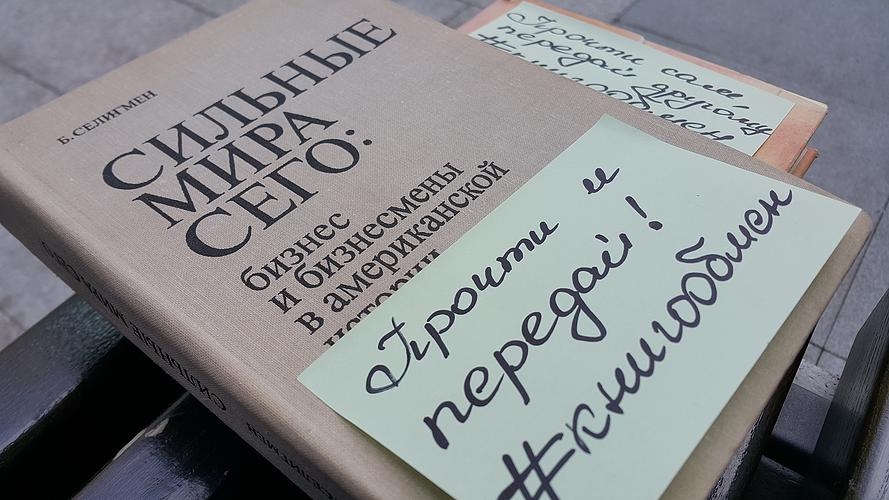 Б. СЕЛИГМЕН
СИЛЬНЫЕ
МИРА
СЕГО:
бизнес
и бизнесмены
в американской
истории
Прочти и
передай!
#книгообмен
Прочти сам,
передай другому
#книгообмен
СИЛЬНЫЕ МИРА СЕГО
СЕЛИГМЕН